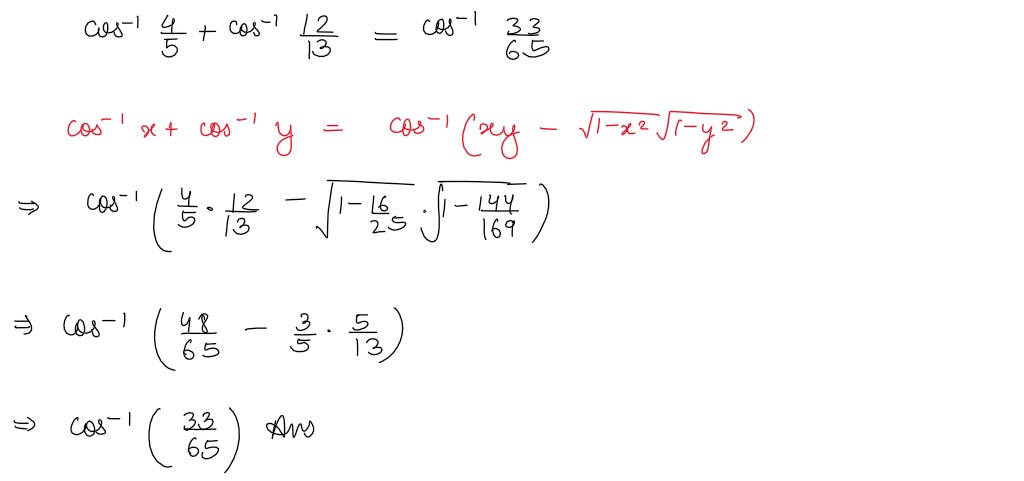 cos⁻¹ 4/5 + cos⁻¹ 12/13 = cos⁻¹ 33/65
cos⁻¹ x + cos⁻¹ y = cos⁻¹ (xy − √(1−x²) √(1−y²))
⇒ cos⁻¹ (4/5 · 12/13 − √(1−16/25) · √(1−144/169))
⇒ cos⁻¹ (48/65 − 3/5 · 5/13)
⇒ cos⁻¹ (33/65) Ans